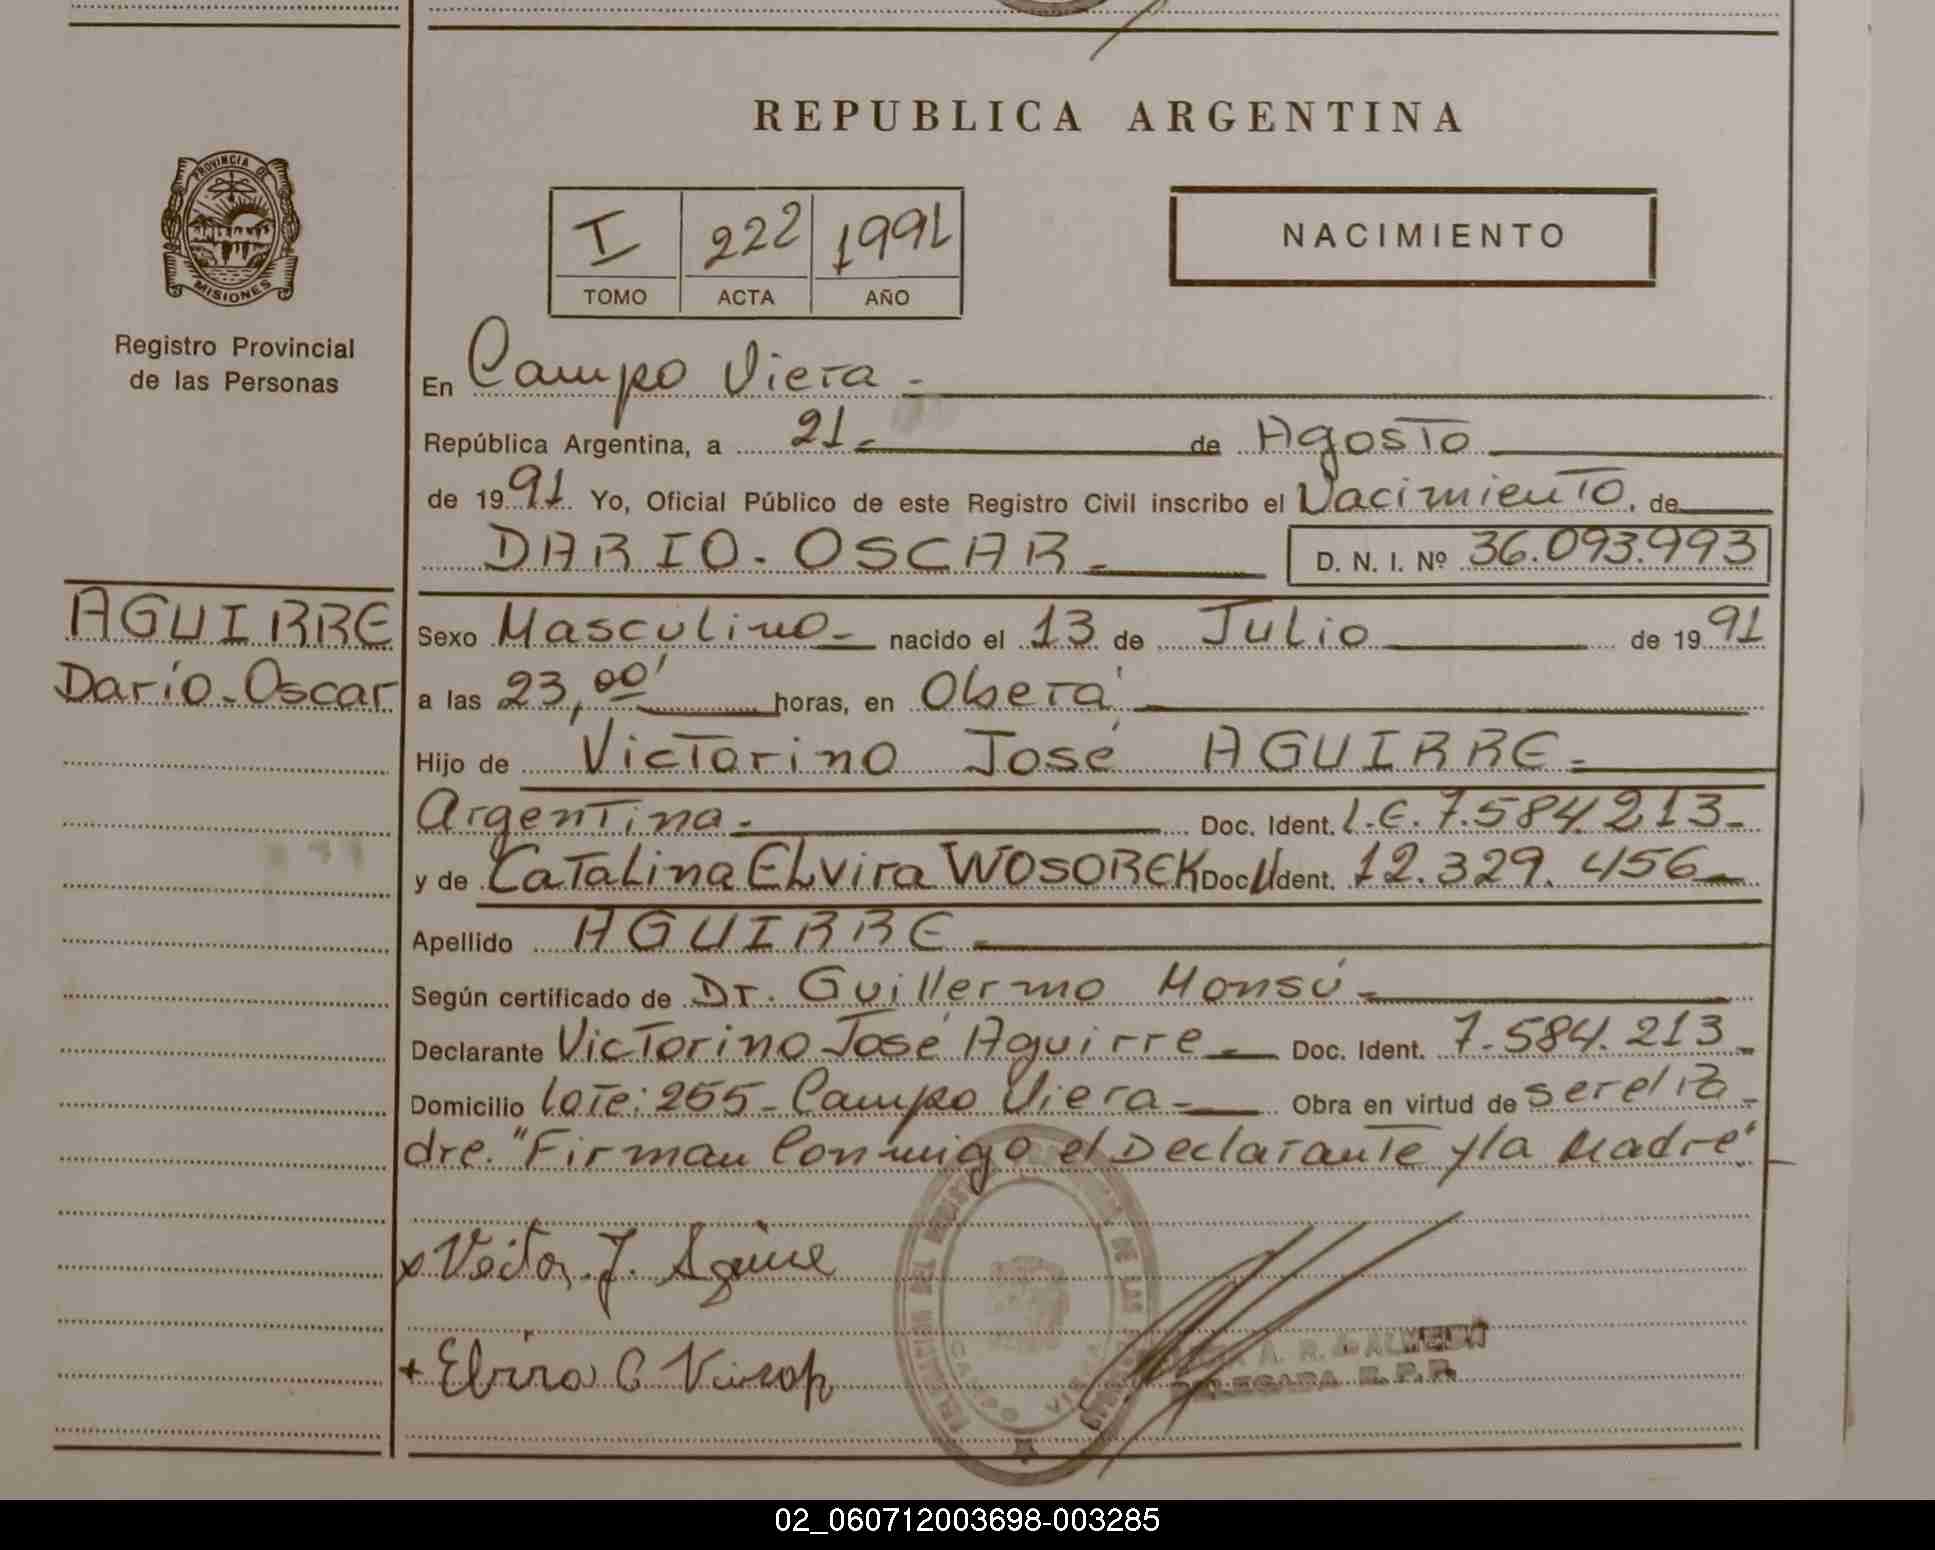 REPUBLICA ARGENTINA
PROVINCIA DE
MISIONES
Registro Provincial
de las Personas
I 222 1991
TOMO ACTA AÑO
NACIMIENTO
En Campo Viera -
República Argentina, a 21 - de Agosto
de 1991 Yo, Oficial Público de este Registro Civil inscribo el Nacimiento, de
DARIO - OSCAR - D. N. I. Nº 36.093.993
AGUIRRE
Darío - Oscar
Sexo Masculino - nacido el 13 de Julio de 1991
a las 23,00' horas, en Oberá
Hijo de Victorino José AGUIRRE -
Argentina - Doc. Ident. L.E. 7.584.213 -
y de CaTaLina ELvira WOSOREK Doc. Ident. 12.329.456 -
Apellido AGUIRRE -
Según certificado de Dr. Guillermo Monsú -
Declarante Victorino José Aguirre - Doc. Ident. 7.584.213 -
Domicilio Lote: 255 - Campo Viera - Obra en virtud de ser el Pa -
dre. "Firman Conmigo el Declarante y la Madre"
x Victor J. Aguirre
+ Elvira C
A. R. de ALMEIDA
DELEGADA R. P. P.
02_060712003698-003285